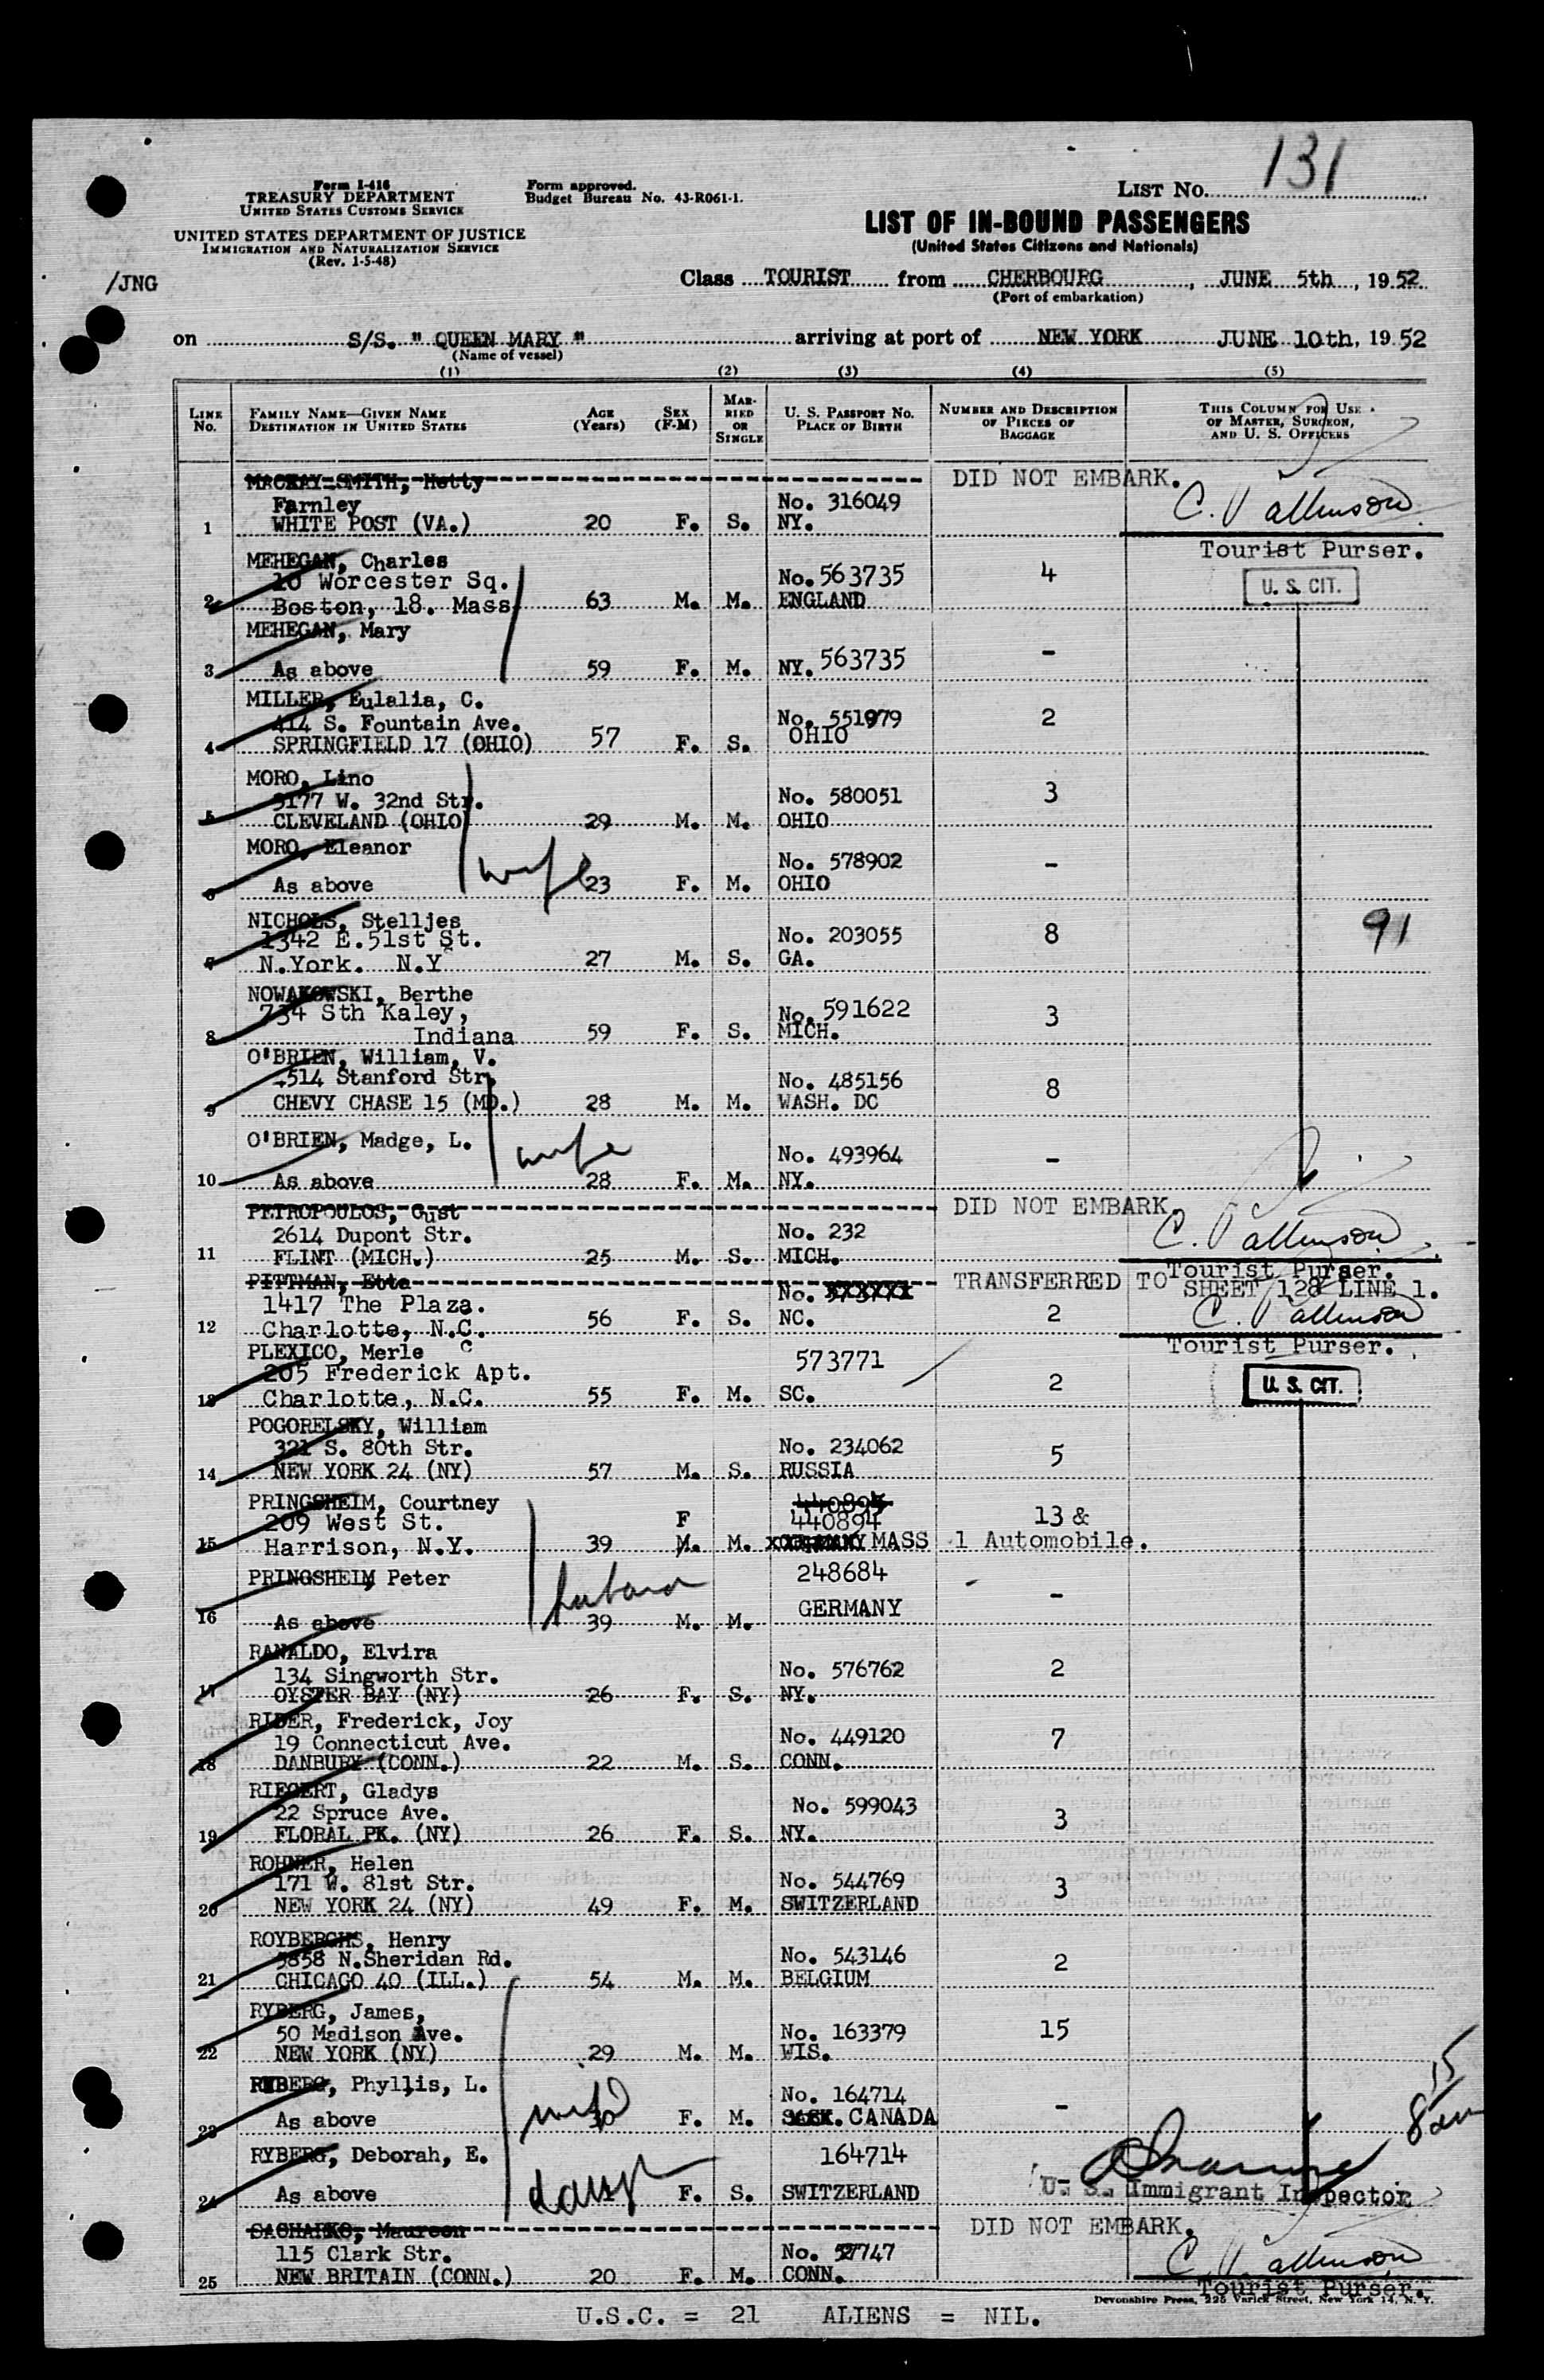 131
Form I-416
TREASURY DEPARTMENT
UNITED STATES CUSTOMS SERVICE
UNITED STATES DEPARTMENT OF JUSTICE
IMMIGRATION AND NATURALIZATION SERVICE
(Rev. 1-5-48)
Form approved.
Budget Bureau No. 43-R061-1.
LIST NO.
LIST OF IN-BOUND PASSENGERS
(United States Citizens and Nationals)
/JNG
Class TOURIST from CHERBOURG, JUNE 5th, 1952
(Port of embarkation)
on S/S. " QUEEN MARY " arriving at port of NEW YORK JUNE 10th, 1952
(Name of vessel)
(1) (2) (3) (4) (5)
LINE No. FAMILY NAME—GIVEN NAME DESTINATION IN UNITED STATES AGE (Years) SEX (F-M) MARRIED OR SINGLE U. S. PASSPORT NO. PLACE OF BIRTH NUMBER AND DESCRIPTION OF PIECES OF BAGGAGE THIS COLUMN FOR USE OF MASTER, SURGEON, AND U. S. OFFICERS
MACKAY-SMITH, Hetty DID NOT EMBARK.
Farnley No. 316049
1 WHITE POST (VA.) 20 F. S. NY.
Tourist Purser.
MEHEGAN, Charles
10 Worcester Sq. No. 563735 4 U. S. CIT.
2 Boston, 18. Mass 63 M. M. ENGLAND
MEHEGAN, Mary
3 As above 59 F. M. NY. 563735 -
MILLER, Eulalia, C.
414 S. Fountain Ave. No. 551979 2
4 SPRINGFIELD 17 (OHIO) 57 F. S. OHIO
MORO, Lino
3177 W. 32nd Str. No. 580051 3
5 CLEVELAND (OHIO) 29 M. M. OHIO
MORO, Eleanor No. 578902 -
wife
6 As above 23 F. M. OHIO
NICHOLS, Stelljes
1342 E. 51st St. No. 203055 8 91
7 N.York. N.Y 27 M. S. GA.
NOWAKOWSKI, Berthe
734 Sth Kaley, No. 591622 3
8 Indiana 59 F. S. MICH.
O'BRIEN, William, V.
4514 Stanford Str. No. 485156 8
9 CHEVY CHASE 15 (MD.) 28 M. M. WASH. DC
O'BRIEN, Madge, L. No. 493964 -
wife
10 As above 28 F. M. NY.
PETROPOULOS, Gust DID NOT EMBARK.
2614 Dupont Str. No. 232
11 FLINT (MICH.) 25 M. S. MICH.
Tourist Purser.
PITTMAN, Etta TRANSFERRED TO SHEET 128 LINE 1.
1417 The Plaza. No.
12 Charlotte, N.C. 56 F. S. NC. 2
Tourist Purser.
PLEXICO, Merle C 573771
205 Frederick Apt. 2 U. S. CIT.
13 Charlotte, N.C. 55 F. M. SC.
POGORELSKY, William
321 S. 80th Str. No. 234062 5
14 NEW YORK 24 (NY) 57 M. S. RUSSIA
PRINGSHEIM, Courtney 440895
209 West St. F 440894 13 &
15 Harrison, N.Y. 39 M. M. GERMANY MASS 1 Automobile.
PRINGSHEIM Peter 248684 -
16 As above 39 M. M. GERMANY
RANALDO, Elvira
134 Singworth Str. No. 576762 2
17 OYSTER BAY (NY) 26 F. S. NY.
RIDER, Frederick, Joy
19 Connecticut Ave. No. 449120 7
18 DANBURY (CONN.) 22 M. S. CONN.
RIEGERT, Gladys
22 Spruce Ave. No. 599043 3
19 FLORAL PK. (NY) 26 F. S. NY.
ROHNER, Helen
171 W. 81st Str. No. 544769 3
20 NEW YORK 24 (NY) 49 F. M. SWITZERLAND
ROYBERGHS, Henry
5858 N.Sheridan Rd. No. 543146 2
21 CHICAGO 40 (ILL.) 54 M. M. BELGIUM
RYBERG, James,
50 Madison Ave. No. 163379 15
22 NEW YORK (NY) 29 M. M. WIS.
RYBERG, Phyllis, L. No. 164714 -
wife
23 As above 30 F. M. SASK. CANADA
RYBERG, Deborah, E. 164714 -
24 As above F. S. SWITZERLAND
U. S. Immigrant Inspector
SACHARKO, Maureen DID NOT EMBARK.
115 Clark Str.
25 NEW BRITAIN (CONN.) 20 F. M. CONN.
Tourist Purser.
Devonshire Press, 225 Varick Street, New York 14, N. Y.
U.S.C. = 21 ALIENS = NIL.